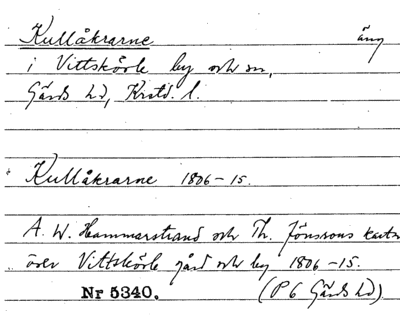 Kullåkrarne äng
i Vittskövle by och sn,
Gärds hd, Krstd. l.
Kullåkrarne 1806-15.
A. W. Hammarstrand och Th. Jönssons karta
över Vittskövle gård och by 1806-15.
Nr 5340. (P 6 Gärds hd)